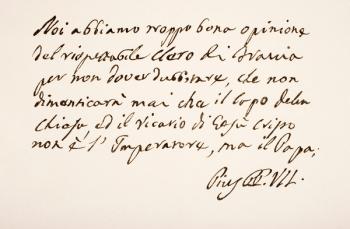 Noi abbiamo troppo bona opinione
del rispettabile Clero di Francia
per non dover dubitare, che non
dimenticarà mai che il Capo della
Chiesa, ed il vicario di Gesù Cristo
non è l' Imperatore, ma il Papa.
Pius P. VII.